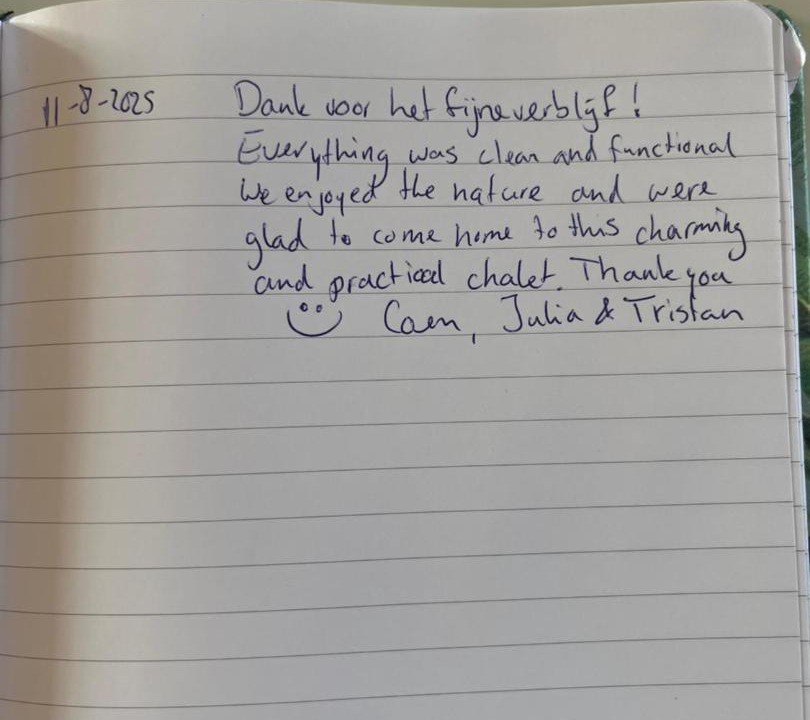 11-8-2025 Dank voor het fijne verblijf!
Everything was clean and functional
We enjoyed the nature and were
glad to come home to this charming
and practical chalet. Thank you
Coen, Julia & Tristan